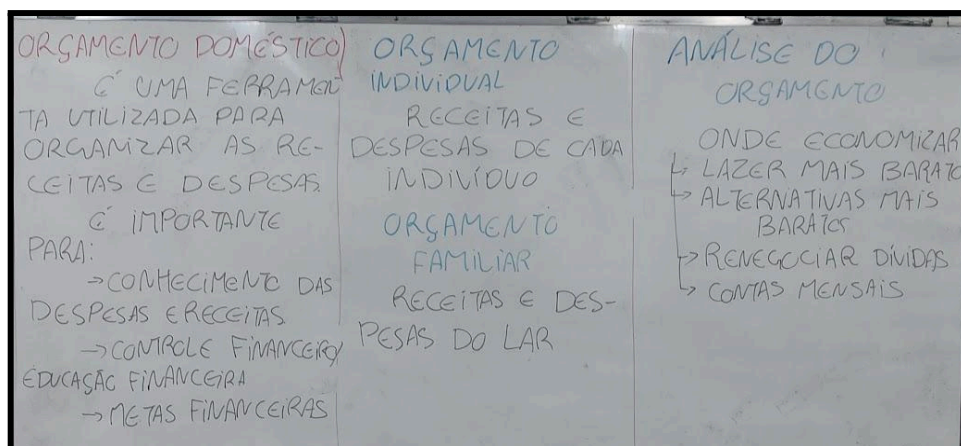 ORÇAMENTO DOMÉSTICO
É UMA FERRAMEN
TA UTILIZADA PARA
ORGANIZAR AS RE-
CEITAS E DESPESAS.
É IMPORTANTE
PARA:
→ CONHECIMENTO DAS
DESPESAS E RECEITAS
→ CONTROLE FINANCEIRO/
EDUCAÇÃO FINANCEIRA
→ METAS FINANCEIRAS
ORÇAMENTO
INDIVIDUAL
RECEITAS E
DESPESAS DE CADA
INDIVÍDUO
ORÇAMENTO
FAMILIAR
RECEITAS E DES-
PESAS DO LAR
ANÁLISE DO
ORÇAMENTO
ONDE ECONOMIZAR
→ LAZER MAIS BARATO
→ ALTERNATIVAS MAIS
BARATOS
→ RENEGOCIAR DÍVIDAS
→ CONTAS MENSAIS